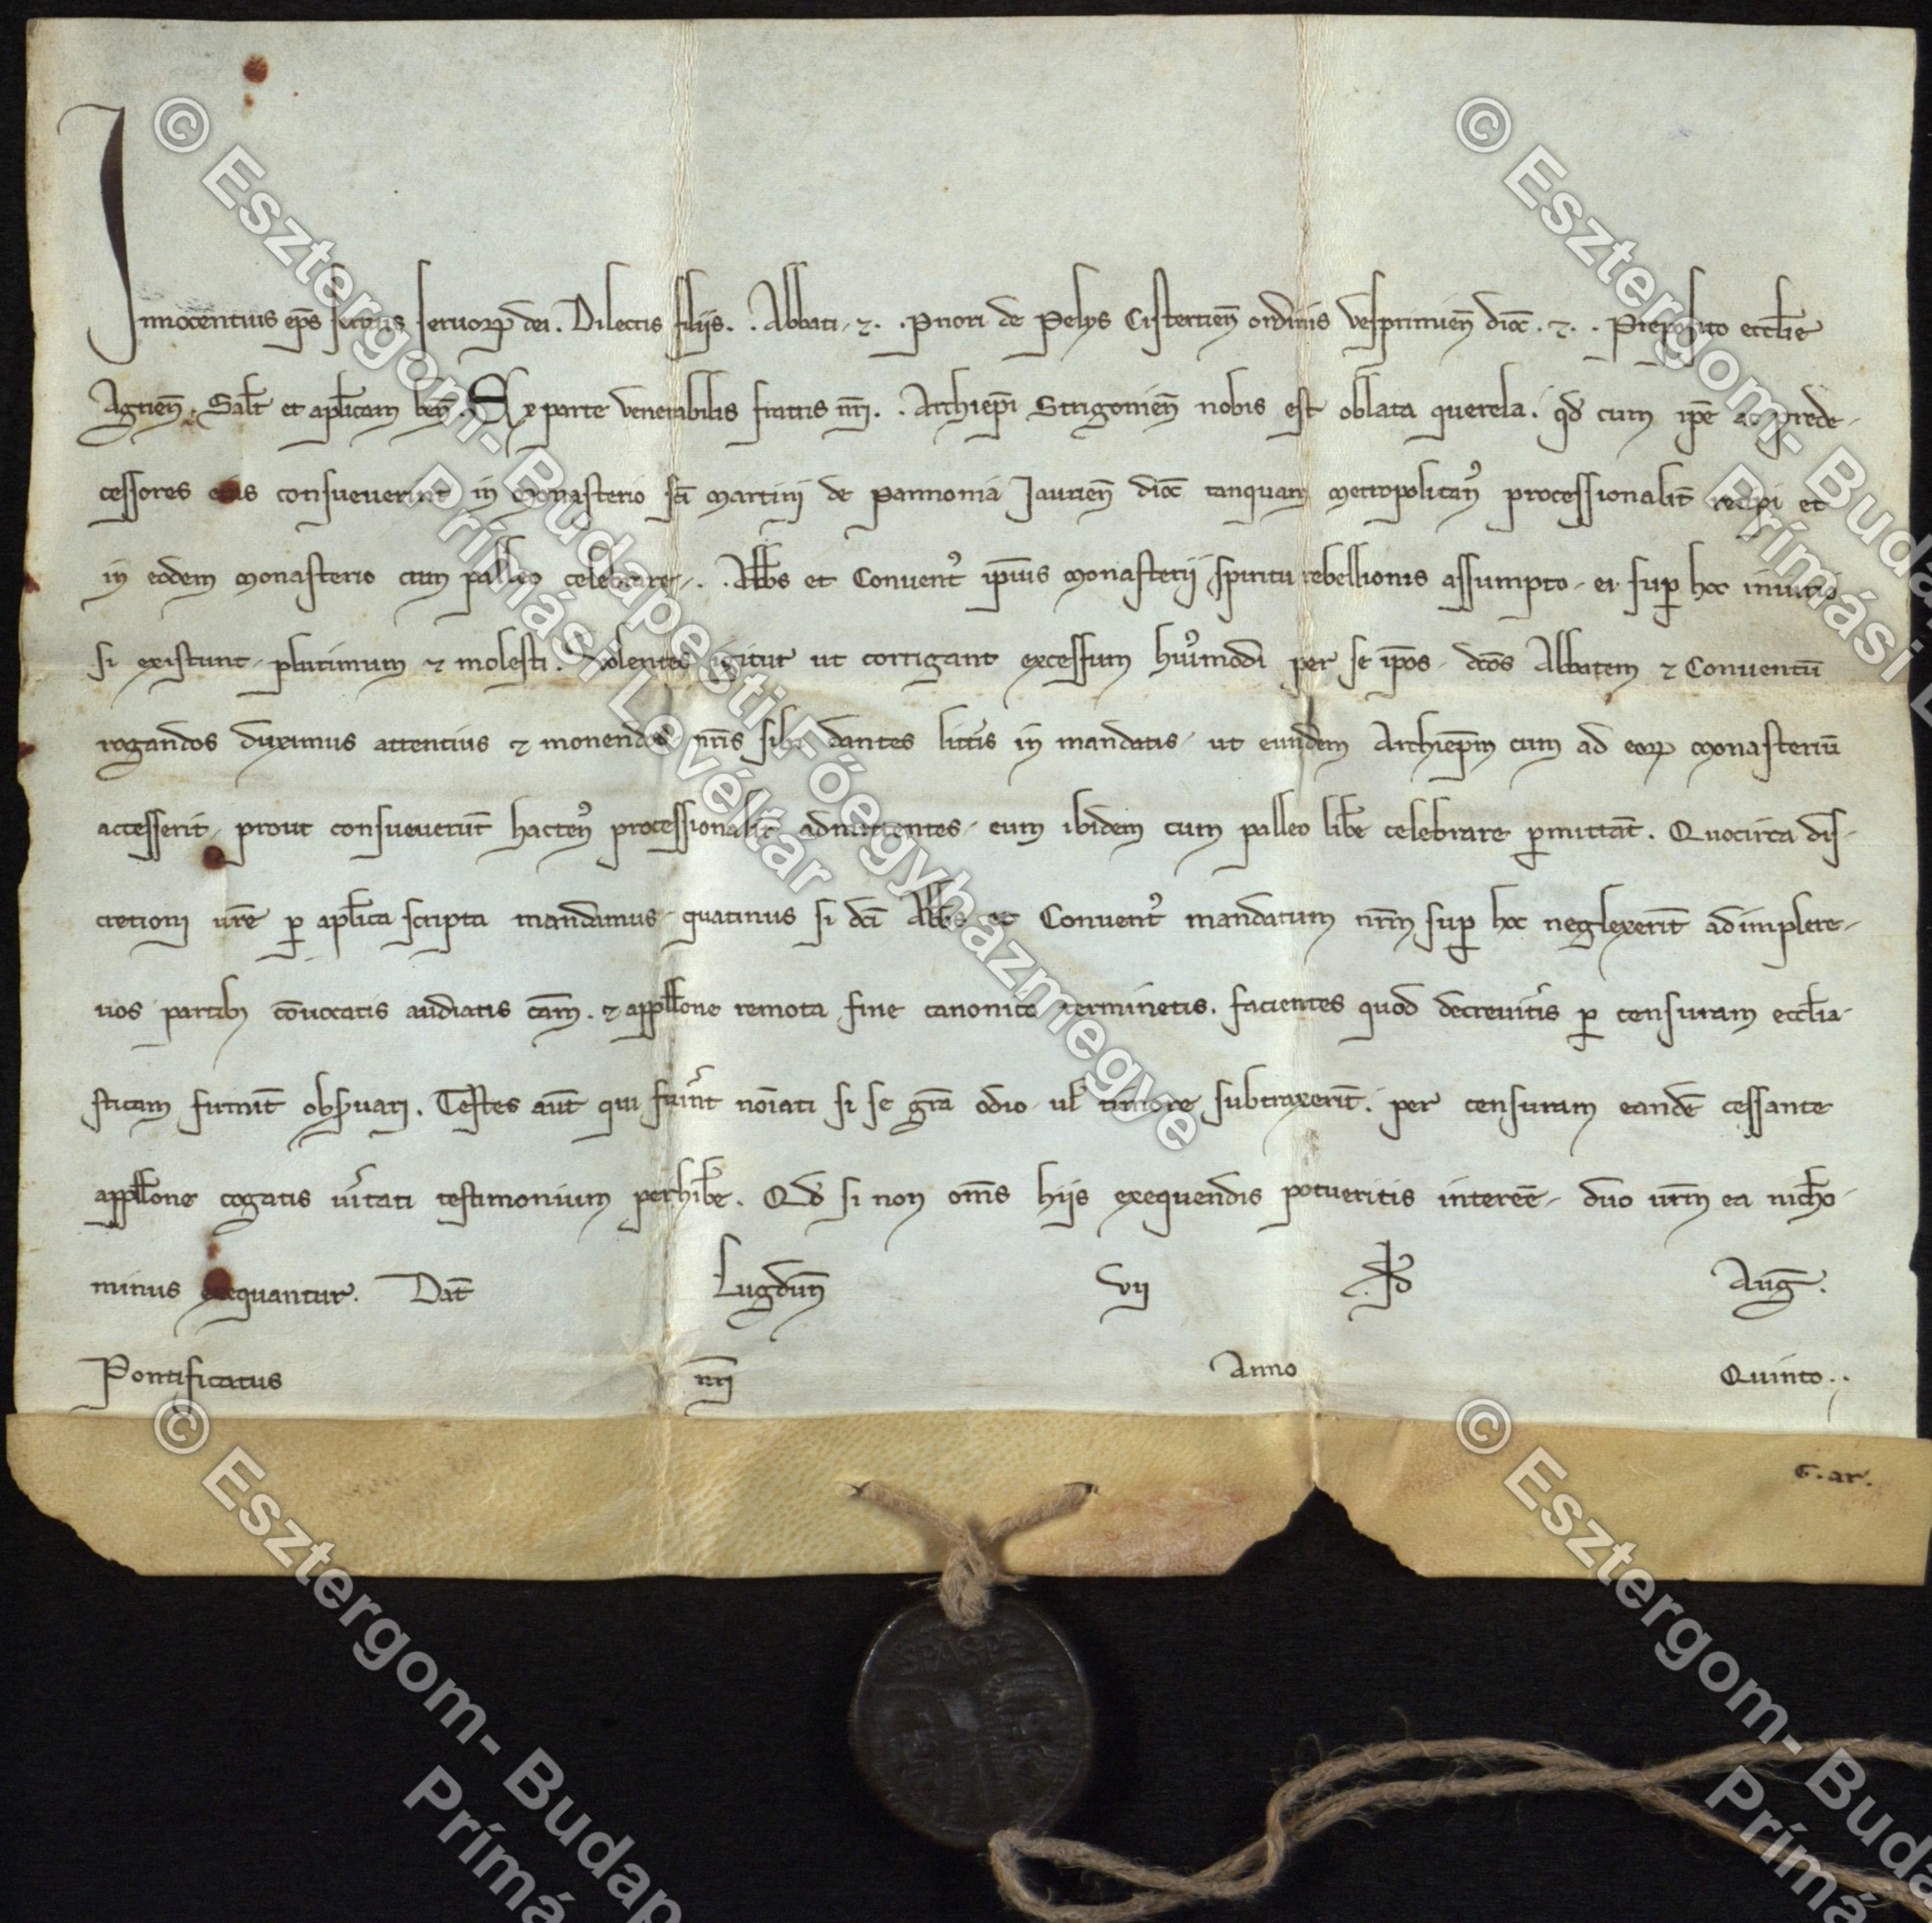 Innocentius ep̄s seruus seruoꝝ dei. Dilectis filijs. . Abbati ⁊. . Priori de Pelys Cistertieñ ordinis Vesprimieñ dioc̄. ⁊. . Preposito eccl̄ie
Agrieñ. Sal̄t et apl̄icam beñ. Ex parte venerabilis fratris nr̄i. . Archiep̄i Strigonieñ nobis est oblata querela. qd̄ cum ip̄e ac prede-
cessores eius consueuerint in Monasterio sc̄i Martini de Pannonia Jaurieñ dioc̄ tanquam Metropolitanꝰ processionalit̄ recipi et
in eodem Monasterio cum palleo celebrare. . Abb̄s et Conuentꝰ ip̄ius Monasterij spiritu rebellionis assumpto ei suꝑ hoc iniurio
si existunt plurimum ⁊ molesti. Volentes igitur ut corrigant excessum huiꝰmodi per se ip̄os dc̄os Abbatem ⁊ Conuentū
rogandos duximus attentius ⁊ monendos nr̄is sibi dantes litt̄is in mandatis ut eundem Archiep̄m cum ad eoꝝ Monasteriū
accesserit prout consueuerūt hactenꝰ processionalit̄ admittentes eum ibidem cum palleo lib̄e celebrare ꝑmittāt. Quocirca dis-
cretioni ur̄e ꝑ apl̄ica scripta mandamus quatinus si dc̄i Abb̄s et Conuentꝰ mandatum nr̄m suꝑ hoc neglexerīt adimplere
uos partibꝫ cōuocatis audiatis cām. ⁊ appll̄one remota fine canonico terminetis. facientes quod decreueritis ꝑ censuram eccl̄ia-
sticam firmit̄ obseruari. Testes aut̄ qui fueri̇nt nōiati si se gr̄a odio ul̄ timore subtraxerīt. per censuram eandē cessante
appll̄one cogatis ueritati testimonium perhib̄e. Qd̄ si non om̄s hijs exequendis potueritis interēe duo ur̄m ea nicho-
minus exequantur. Dat̄ Lugduñ VII kl̄ Auḡ.
Pontificatus nr̄i Anno Quinto. .
G. ar.
© Esztergom-Budapesti Főegyházmegye
Prímási Levéltár
© Esztergom-Budap
Prímási L
© Esztergom-Budap
Prímá
© Esztergom-Buda
Prímá
SPASPE